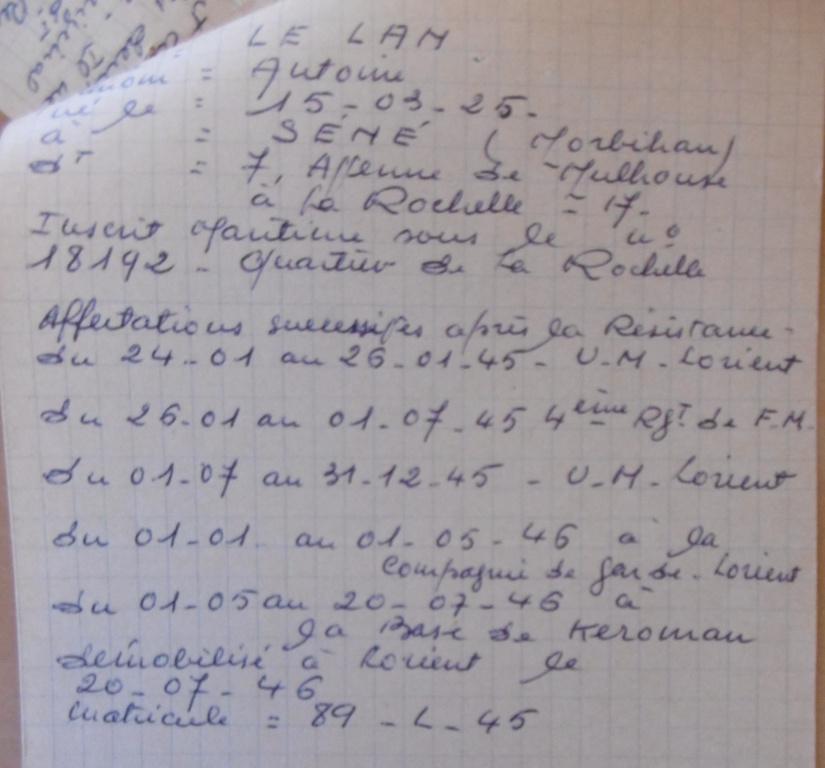 LE LAN
= Antoine
né le = 15-03-25-
à = SÉNÉ (Morbihan)
dT = 7, Avenue de Mulhouse
à La Rochelle = 17-
Inscrit Maritime sous le n°
18192 - Quartier de La Rochelle
Affectations successives après la Résistance-
du 24-01 au 26-01-45- U-M-Lorient
du 26-01 au 01-07-45 4ème Rgt de F.M.
du 01-07 au 31-12-45 - U-M-Lorient
du 01-01 au 01-05-46 à la
Compagnie de Garde-Lorient
du 01-05 au 20-07-46 à
la Base de Keroman
démobilisé à Lorient le
20-07-46
Matricule = 89-L-45